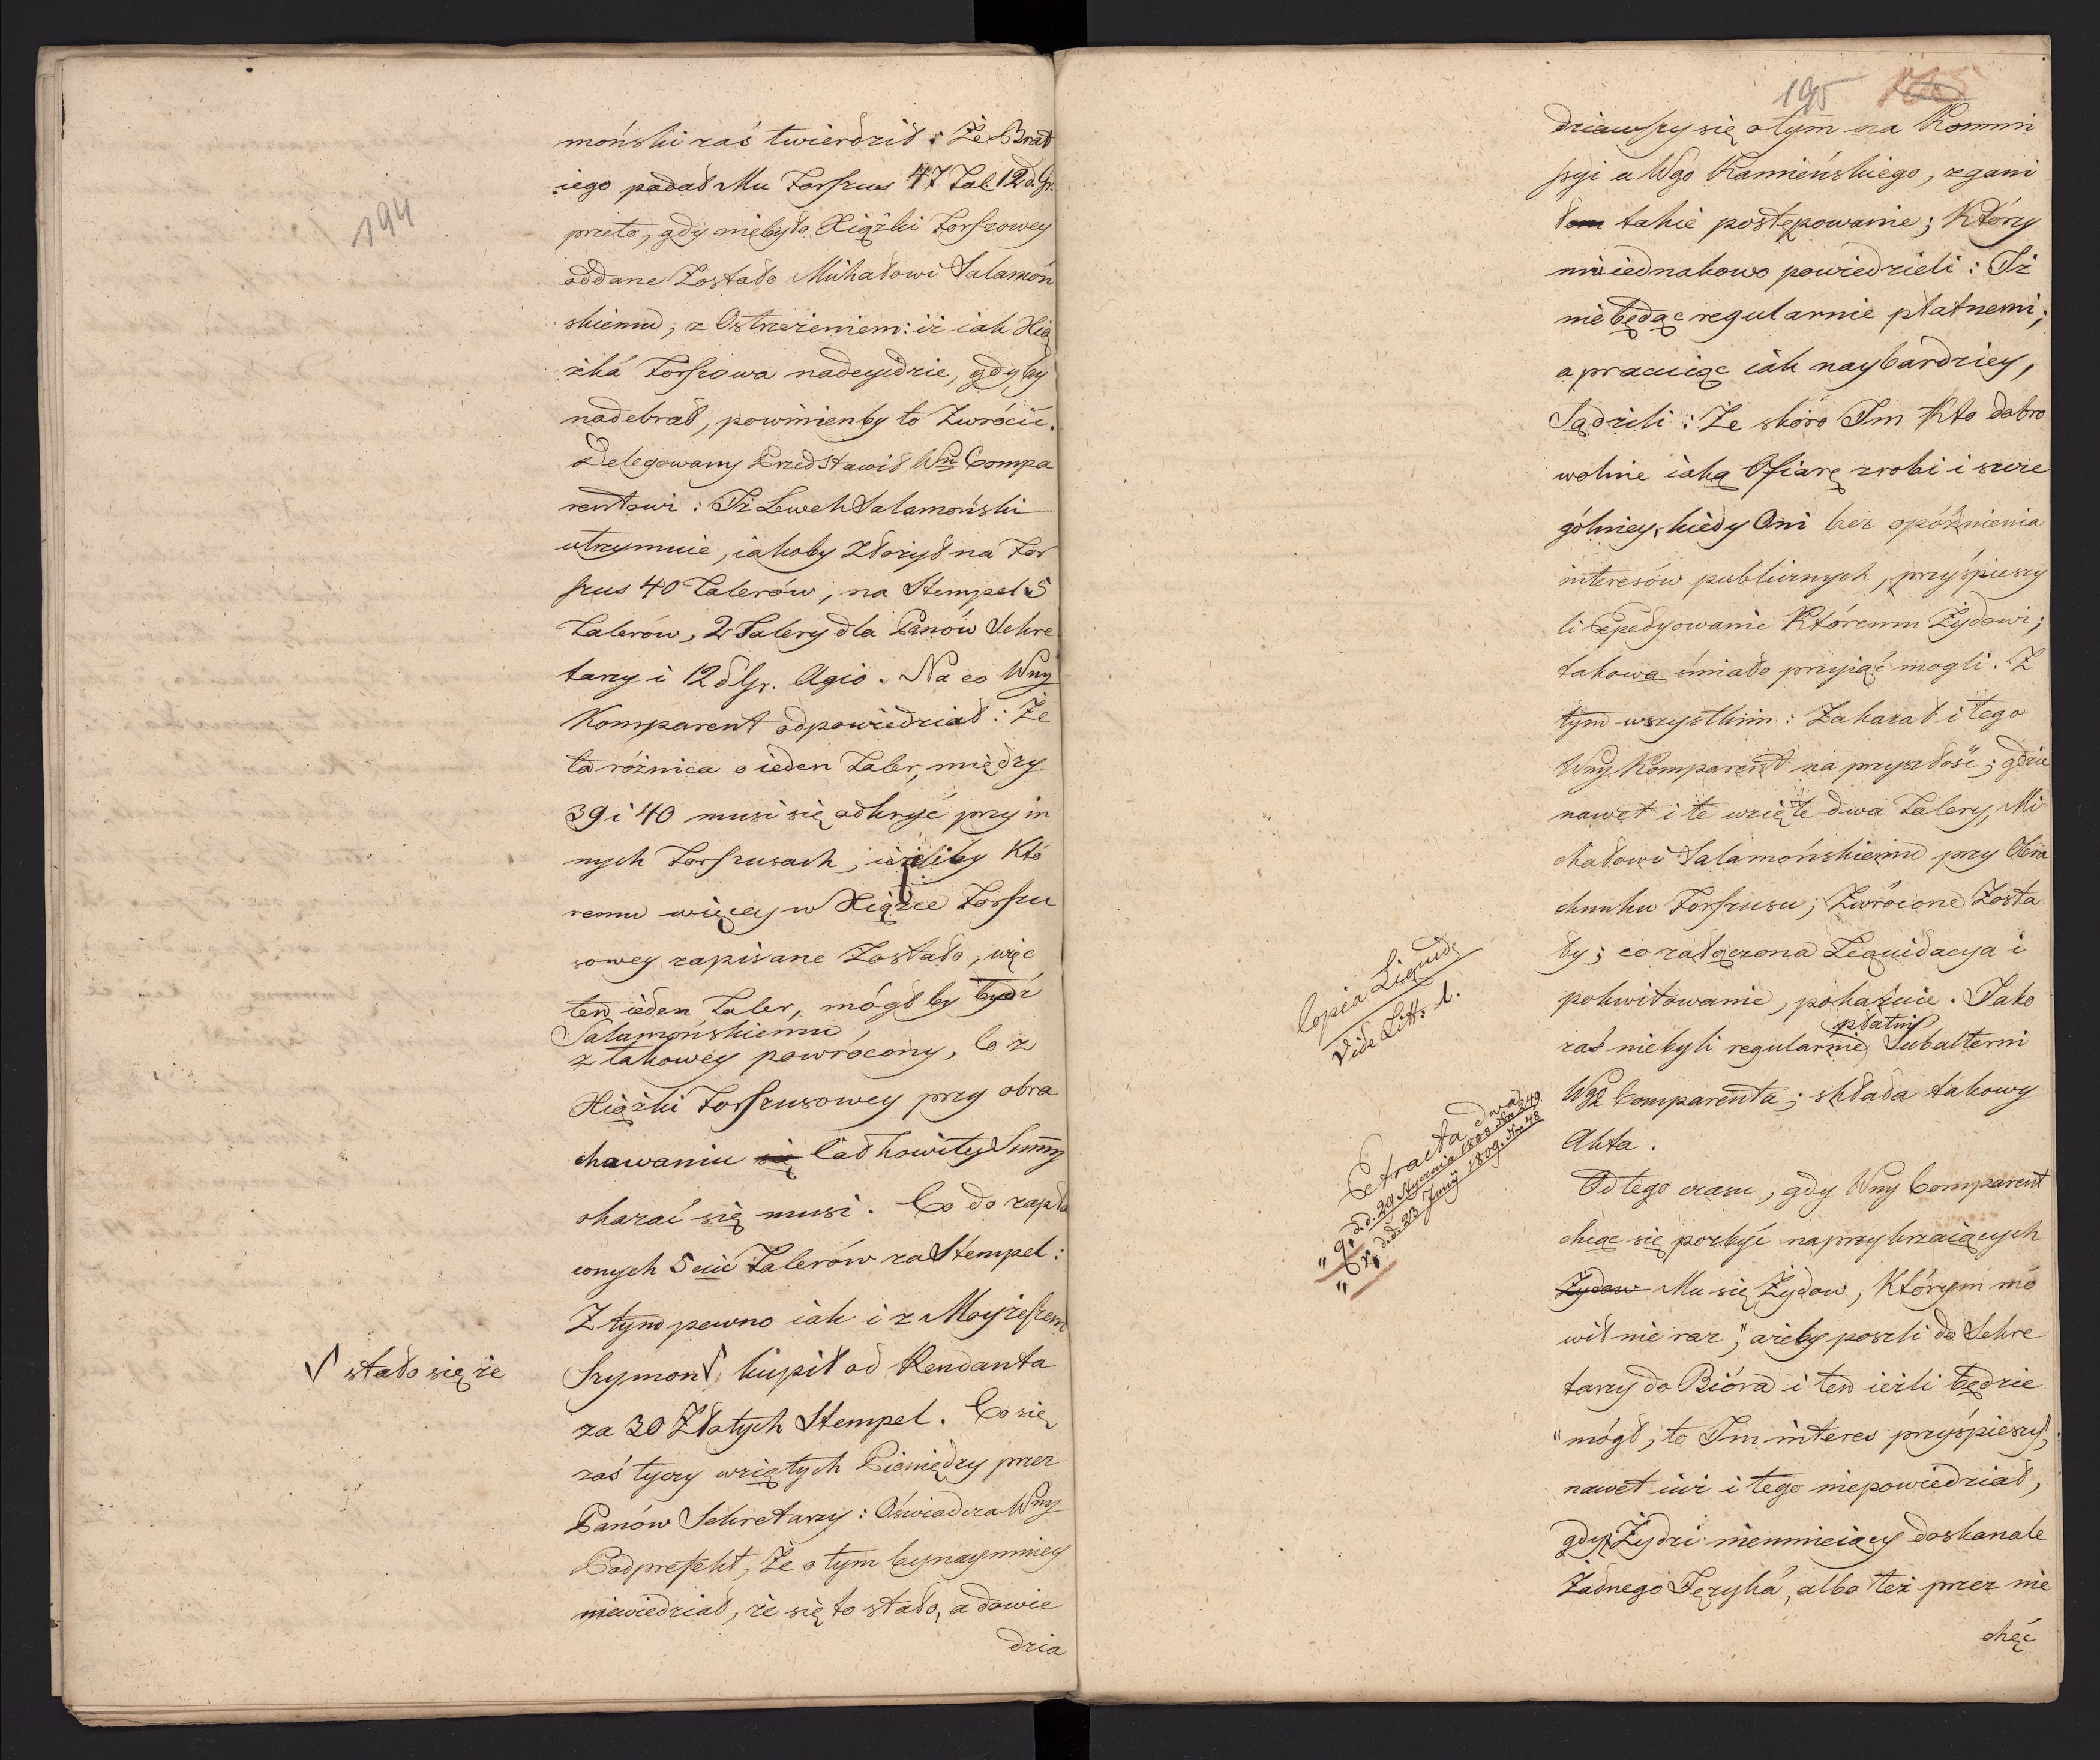 194
moński zaś twierdził: Że Brat
iego podał Mu Forszus 47 Tal. 12 d. Gr.
przeto, gdy niebyło Xiąźki Forszowey
oddane Zostało Michałowi Salamoń
skiemu, z Ostrzeżeniem: iż iak Xią
żka Forszowa nadeyidzie, gdyby
nadebrał, powinienby to Zwrócić.
Delegowany Przedstawił Wmu Compa
rentowi: Iż Lewek Salamoński
utrzymuie, iakoby Złożył na For
szus 40 Talerów, na Stempel 5
Talerów, 2 Talery dla Panów Sekre
tarzy i 12 d Gr. Agio. Na co Wny
Komparent odpowiedział: Że
ta róźnica o ieden Taler, między
39 i 40 musi się odkryć przy in
nych Forszusach, ieżeliby Któ
remu więcey w Xiążce Forszu
sowey zapisane Zostało, więc
ten ieden Taler, mógł by bydź
Salamońskiemu
z takowey powrócony, Co z
Xiążki Forszusowey przy obra
chowaniu się Całkowitey Summy
okazać się musi. Co do zapła
conych 5ciu Talerów za Stempel:
Z tym pewno iak i z Moyżeszem
Szymon √ kupił od Rendanta
√ stało się że
za 30 Złotych Stempel. Co się
zaś tyczy wziętych Pieniędzy przez
Panów Sekretarzy: Oświadcza Wny
Podprefekt, Że o tym bynaymniey
niewiedział, że się to stało, a dowie
dzia
195
dziawszy się o tym na Kommi
ssyi u Wgo Kamieńskiego, zgani
łem takie postępowanie; Którzy
mu iednakowo powiedzieli: Iż
nie będąc regularnie płatnemi;
a pracuiąc iak naybardziey,
Sądzili: Że skoro Im Kto dobro
wolnie iaką Ofiarę zrobi i szcze
gólniey, kiedy Oni bez opóźnienia
interesów publicznych, przyśpieszy
li Expedyowanie Któremu Żydowi;
takową śmiało przyiąć mogli. Z
tym wszystkim: Zakazał i tego
Wny Komparent na przyszłość; gdzie
nawet i te wzięte dwa Talery, Mi
chałowi Salamońskiemu przy Obra
chunku Forszusu, Zwrócone Zosta
ły; co załączona Liquidacya i
Copia Liquid:
Vide Litt: A.
pokwitowanie, pokazuie. Jako
płatni
zaś niebyli regularnie Subalterni
Wgo Comparenta; składa takowy
Extracta dwa
" 9, d.d. 29 Stycznia 1809 Nro 249.
" Er, d.d. 23 Juny 1809. Nro 48
Akta.
Od tego czasu, gdy Wny Comparent
chcąc się pozbyć naprzykrzaiących
Żydow Mu się Żydow, Którym mó
wił nie raz, "ażeby poszli do Sekre
tarzy do Bióra i ten ieżli będzie
"mógł, to Im interes przyśpieszy,
nawet iuż i tego niepowiedział,
gdyż Żydzi nieumieiący doskonale
Żadnego Języka, albo też przez nie
chęć